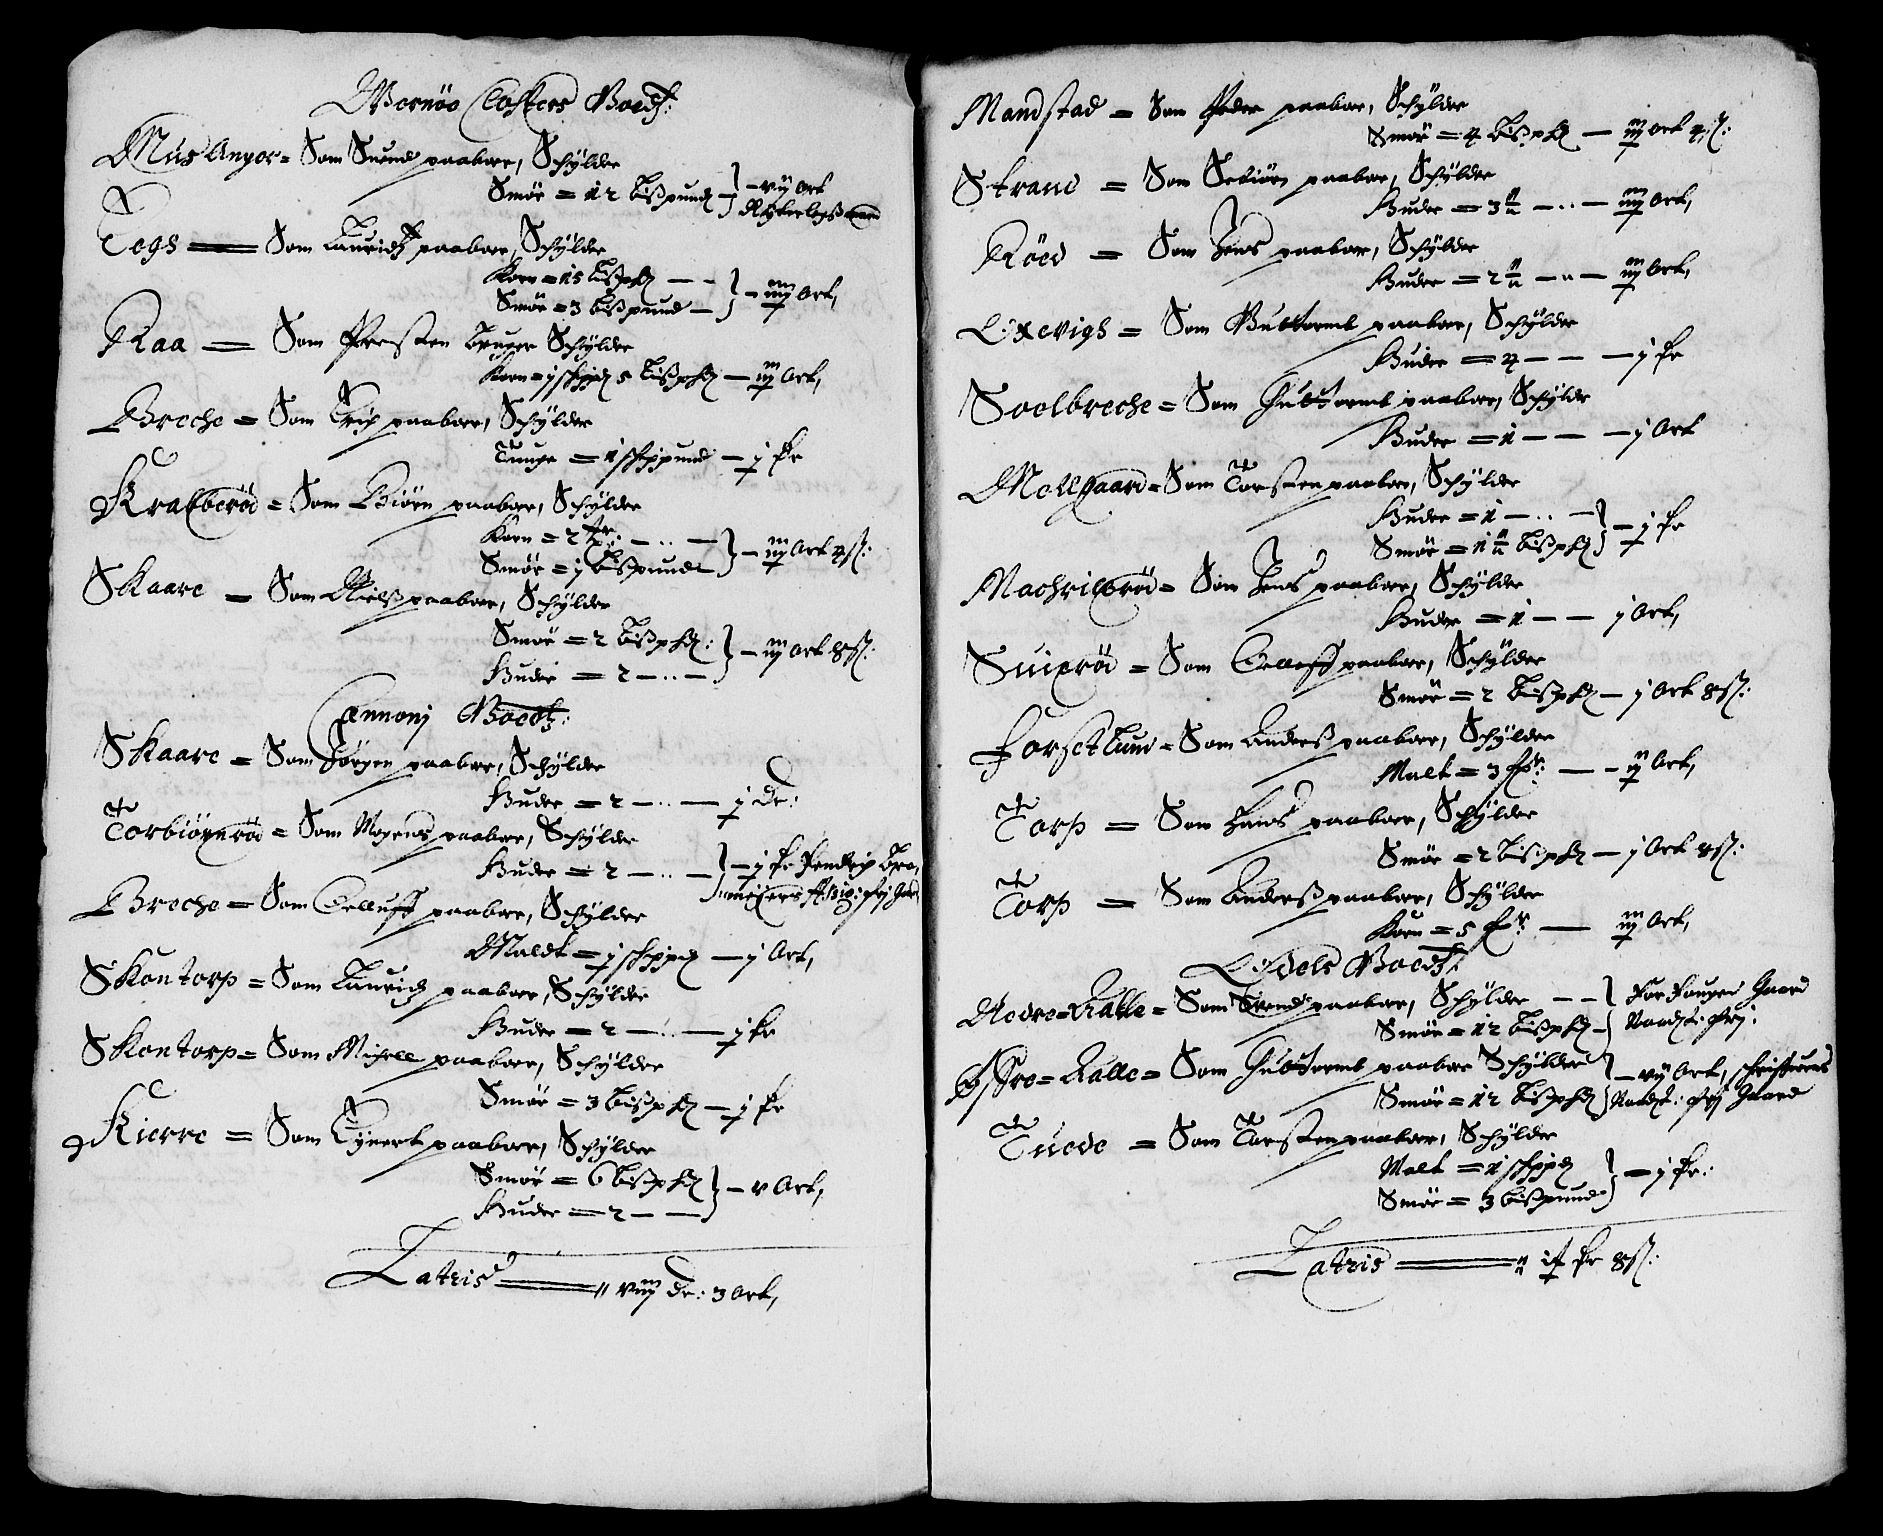 Wernöe Closters Goeds:
Mus Anger = Som Suend paaboer, Schylder
Smör = 12 bißpund — } — vij Ort
Tegs — Som Lauridz paaboer, Schylder
Korn = 15 bißpd — —
Smör = 3 bißpund — } — iiij Ort,
Raa — Som Presten bruger Schylder
Korn = j schippd 5 bißpd — iij Ort,
Breche = Som Erich paaboer, Schylder
Tunge = 1 schippund — j
Kralberöd = Som Biörn paaboer, Schylder
Korn = 2 — .. —
Smör = j bißpund — } — iij Ort 4 ß:
Skaare — Som Nielß paaboer, Schylder
Smör = 2 bißpd:
Huder = 2 — .. — } — iij Ort 8 ß:
Cannonj Goeds:
Skaare = Som Jörgen paaboer, Schylder
Huder = 2 — .. — j dr:
Torbiörnröd = Som Mogens paaboer, Schylder
Huder = 2 — .. — } — j
Breche = Som Oelluff paaboer, Schylder
Maldt = j schippd — j Ort,
Skontorp = Som Lauridz paaboer, Schylder
Huder = 2 — .. — j
Skontorp = Som Michell paaboer, Schylder
Smör = 3 bißpd — j
Kierre = Som Eynert paaboer, Schylder
Smör = 6 bißpd
Huder = 2 — — } — v Ort,
Latris — viij dr: 3 Ort,
Mandstad = Som Peder paaboer, Schylder
Smör = 4 bißpd — iij Ort 4 ß:
Strand = Som paaboer, Schylder
Huder = 3 — .. — iiij Ort,
Röed = Som Jens paaboer, Schylder
Huder = 2 — iij Ort,
Oxevigh = Som Guttormb paaboer, Schylder
Huder = 4 — — — j
Soelbreche = Som Guttormb paaboer, Schylder
Huder = 1 — — — j Ort
Mellgaard = Som Torsten paaboer, Schylder
Huder = 1 — .. —
Smör = 1 bißpd } — j
Machrilleröd = Som Jens paaboer, Schylder
Huder = 1 — — j Ort,
Suiröd = Som Oelluff paaboer, Schylder
Smör = 2 bißpd — j Ort 8 ß:
Forsetlund = Som Anderß paaboer, Schylder
Malt = 3 — — ij Ort,
Torp — Som Hans paaboer, Schylder
Smör = 2 bißpd — j Ort 8 ß:
Torp — Som Anderß paaboer, Schylder
Korn = 5 — iij Ort,
Odels Goeds:
Nedre = Kalle = Som Suend paaboer, Schylder — — } Gaard
Smör = 12 bißpd —
Öffre = Kalle = Som Guttormb paaboer Schylder } — vij Ort,
Smör = 12 bißpd Gaard
Tuede = Som Torsten paaboer, Schylder
Malt = 1 schippd
Smör = 3 bißpund } — j
Latris — 8 ß: